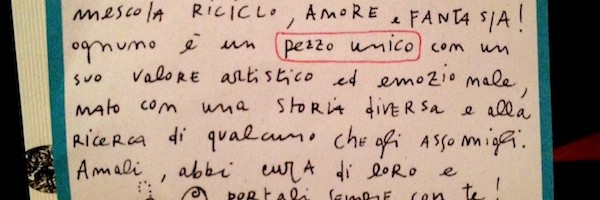 mescola RICICLO, AMORE e FANTASIA!
ognuno è un pezzo unico con un
suo valore artistico ed emozionale,
nato con una STORIA diversa e alla
RICERCA di qualcuno che gli assomigli.
Amali, abbi cura di loro e
portali sempre con te!